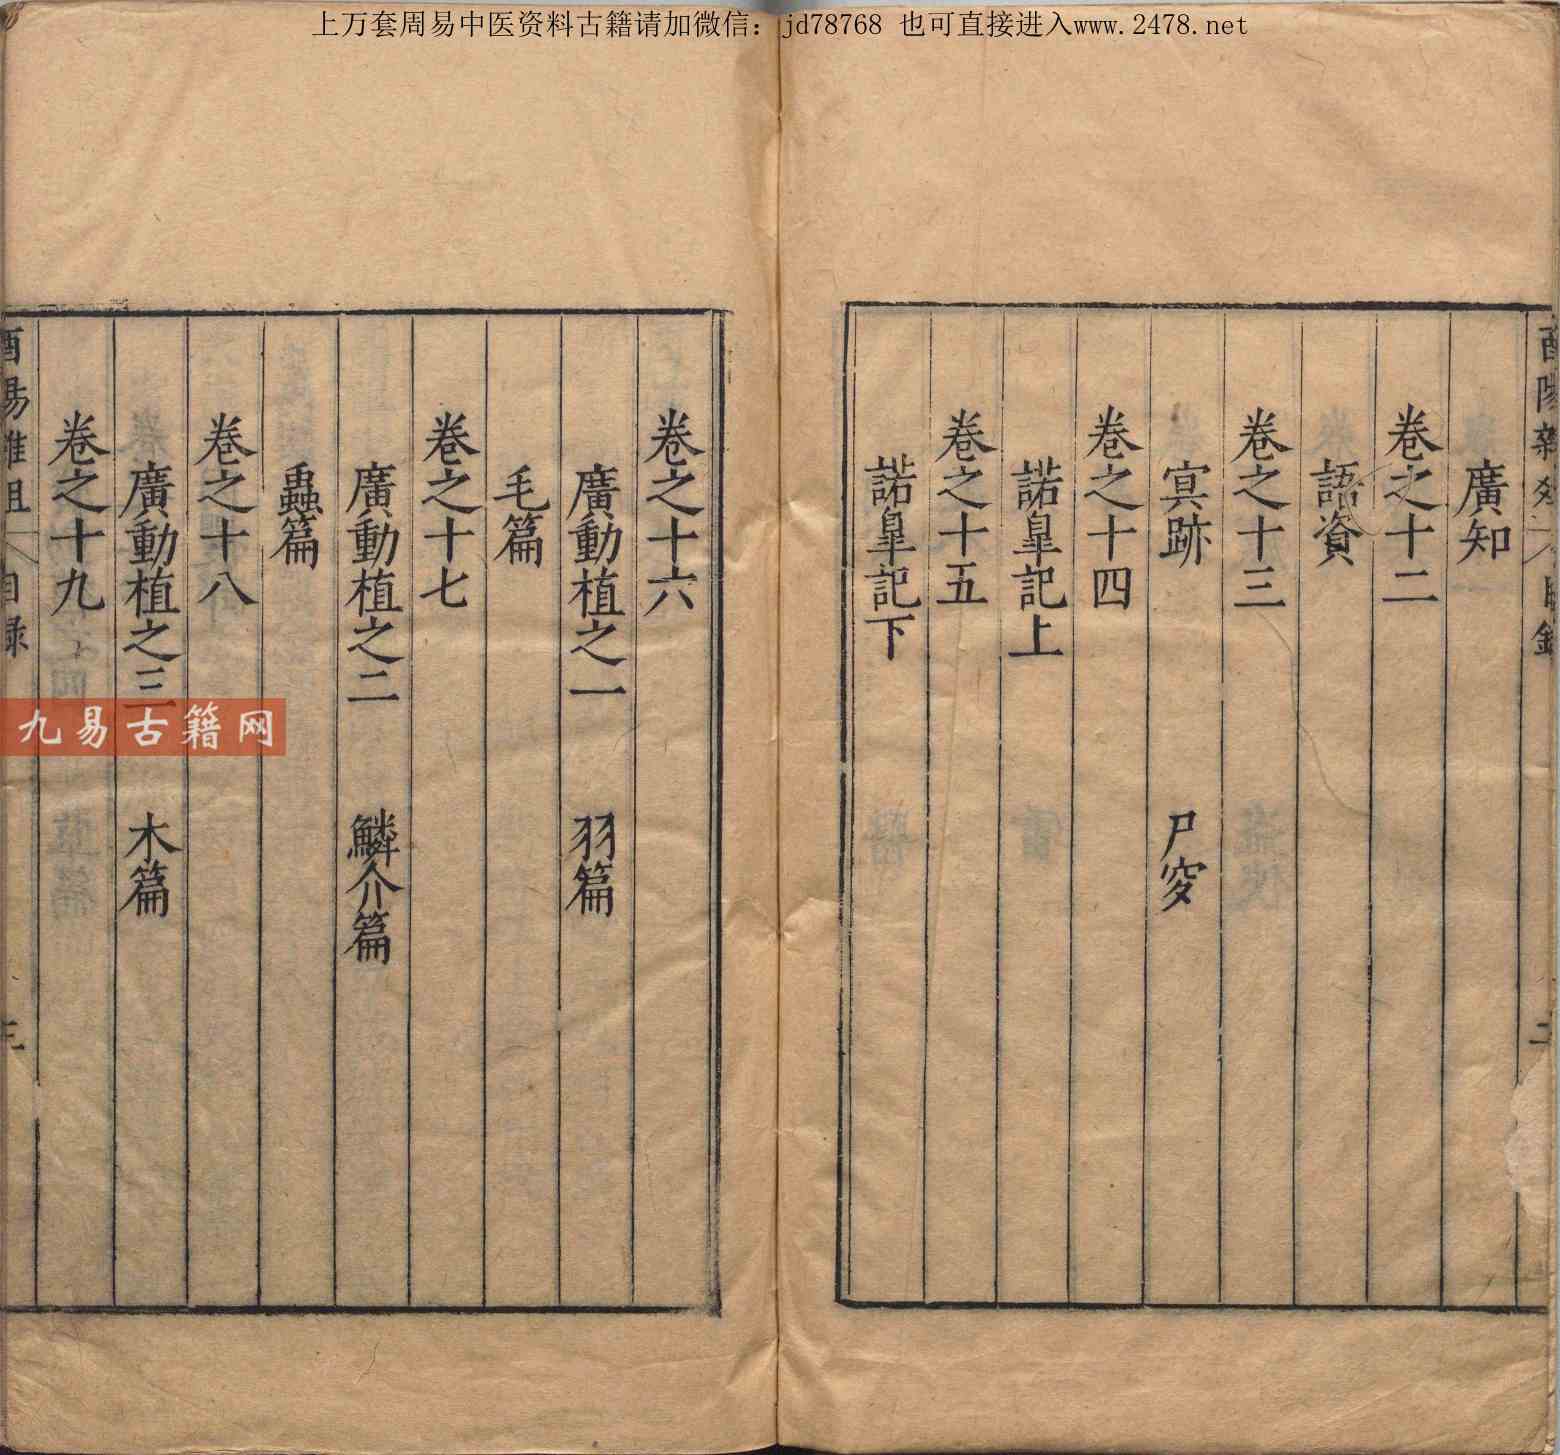 上万套周易中医资料古籍请加微信：jd78768 也可直接进入www.2478.net
廣知
卷之十二
語資
卷之十三
㝠跡 尸穸
卷之十四
諾臯記上
卷之十五
諾臯記下
卷之十六
廣動植之一 羽篇
毛篇
卷之十七
廣動植之二 鱗介篇
蟲篇
卷之十八
廣動植之三 木篇
卷之十九
九易古籍网